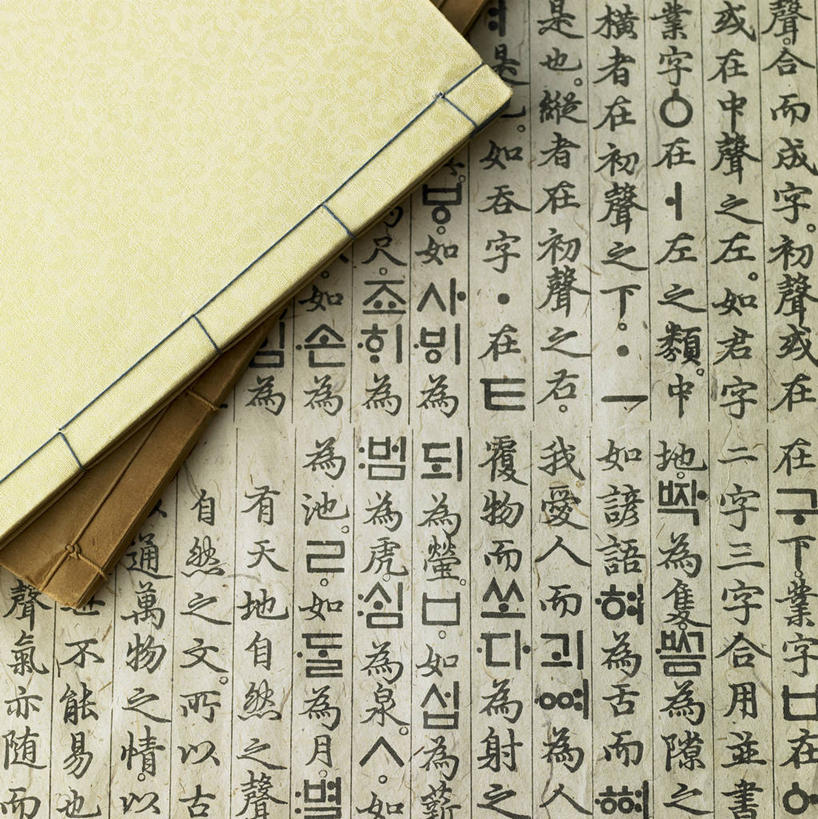 聲合而成字。初聲或在
或在中聲之左。如君字
業字ㆁ在ㅓ左之類。中
橫者在初聲之下。ㆍㅡ
是也。縱者在初聲之右。
是如吞字ㆍ在ㅌ
如사ᄫᅵ為
尺。죠ᄒᆡ為
如손為
為
在구下。業字ㅂ在
二字三字合用並書
地。ᄧᅡᆨ為隻。ᄢᅳᆷ為隙之
如諺語혀為舌而ᅘᅧ
我愛人而괴ᅇᅧ為人
覆物而쏘다為射之
되為螢。ㅂ。如섭為薪
범為虎。ᄉᆡᆷ為泉。ㅅ。如
為池。ㄹ。如ᄃᆞᆯ為月。별
有天地自然之聲
自然之文。所以古
通萬物之情。以
不能易也
聲氣亦随而